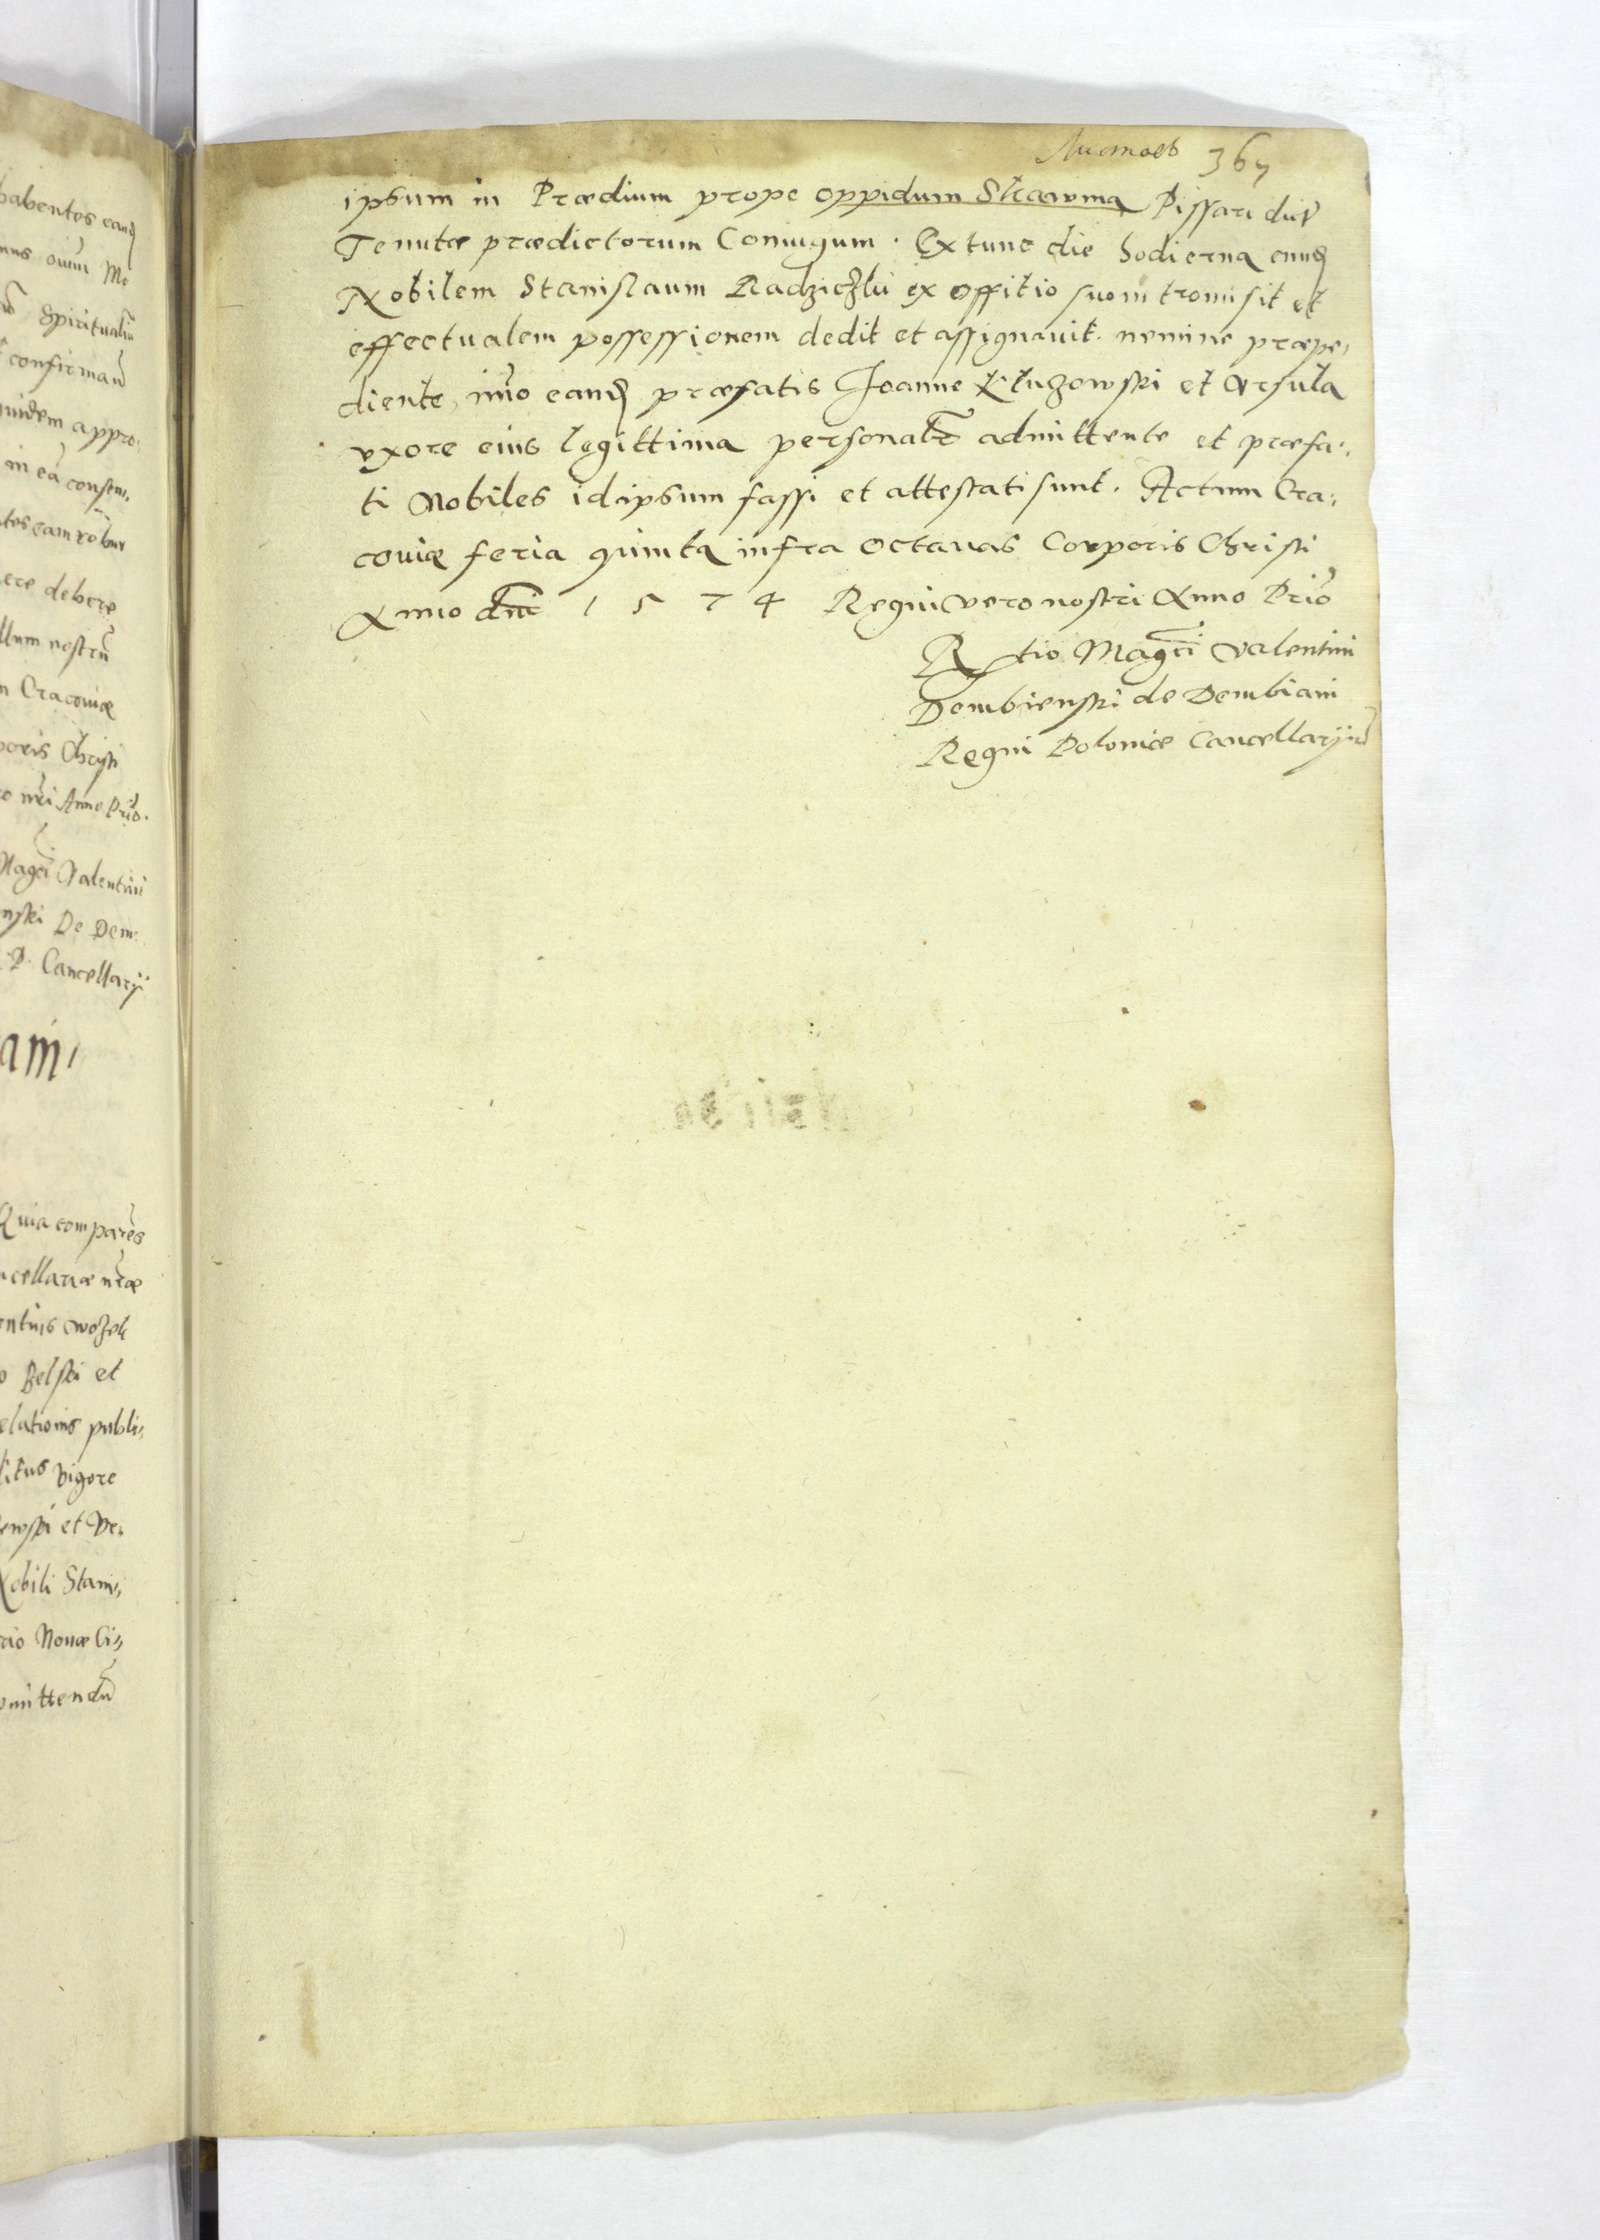 Листовъ 367
ipsum in Prædium prope oppidum Skawina Pissari dict
Tenutæ prædictorum Coniugum. Ex tunc die hodierna eund
Nobilem Stanislaum ex offitio suo intromisit et
effectualem possessionem dedit et assignauit. nemine præpe,
diente, imo eand præfatis Joanne et Vrsula
vxore eius legittima personalr admittente et præfa,
ti Nobiles idipsum fassi et attestati sunt. Actum Cra,
couiæ feria quinta infra octauas Corporis Christi
Anno dni 1574 Regni vero nostri Anno Prio
Rtio Magci Valentini
Dembienski de Dembiani
Regni Poloniæ Cancellarij
habentes eand
spiritualiu
confirman
quidem appro,
in ea consen,
tes eam robur
ere debere
llum nostru
n Cracouiæ
poris Christi
o nri Anno Prio.
Magci Valentini
nski De Dem
P. Cancellarij
am,
Quia comparens
ncellariæ nræ
entius wozek
o Belski et
elationis publi,
litus vigore
ewski et Ve,
Nobili Stani,
cio Nouæ Ci,
omittendu